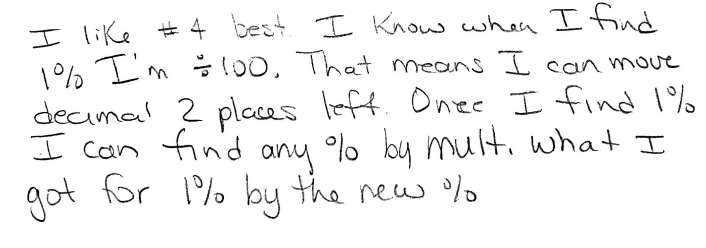 I like #4 best. I know when I find
1% I'm ÷100. That means I can move
decimal 2 places left. Once I find 1%
I can find any % by mult. what I
got for 1% by the new %